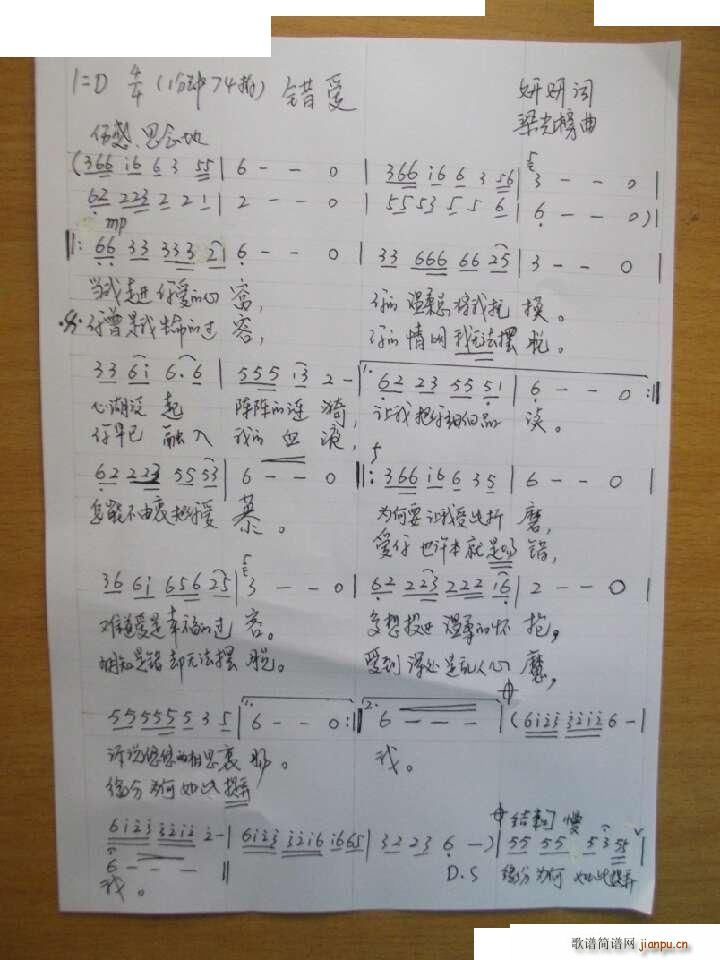 1=D 4/4 (1分钟74拍) 错爱 妍妍词
梁光榜曲
伤感、思念地
(366 i6 6 3 55 | 6 - - 0 | 366 i6 6 3 56 | 3 - - 0 |
62 223 2 2 1 | 2 - - 0 | 55 53 5 5 6 | 6 - - 0)|
mp
‖: 66 33 333 21 | 6 - - 0 | 33 666 66 25 | 3 - - 0 |
当我走进你爱的心窗, 你的温柔总将我拖
你曾是我生命的过客, 你的情网我无法摆脱。
33 6i 6·6 | 555 i3 2 - | 1. 62 23 55 51 | 6 - - 0 :‖
心湖泛起 阵阵的涟漪, 让我把你细细品
你早已融入 我的血液,
62 223 55 53 | 6 - - 0 ‖: 366 i6 6 35 | 6 - - 0 |
怎能不由衷把你爱慕。 为何要让我受此折磨,
爱你也许本就是 错,
36 6i 656 25 | 3 - - 0 | 62 223 222 i6 | 2 - - 0 |
难道爱是幸福的过客。 多想投进温馨的怀抱,
明知是错却无法摆脱。 爱到深处是乱人心魔,
55 55 55 5 3 5 | 1. 6 - - 0 :‖ 2. 6 - - - | (6i23 32i2 6 - |
诉说 相思
我。
缘分为何如此捉弄
6i23 32i2 2 - | 6i23 32i6 i6 65 | 3 2 2 3 6 - ) | 结束句 慢 55 55 5 3 55
6 - - - ‖ D.S 缘分为何 如此捉弄
我。
歌谱简谱网
jianpu.cn